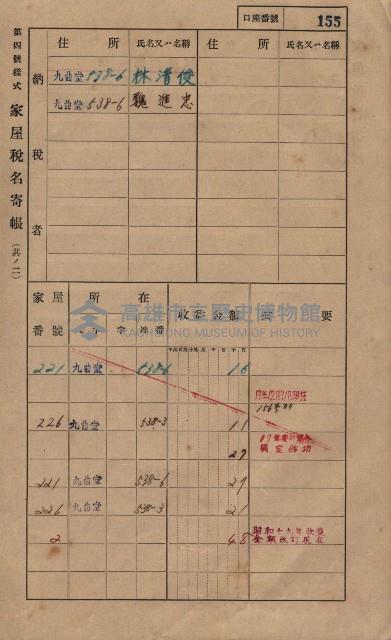 口座番號 155
第四號樣式 家屋稅名寄帳 (其ノ二)
納稅者
住所 氏名又ハ名稱 住所 氏名又ハ名稱
九曲堂 538-6 林清俊
九曲堂 538-6 魏進忠
家屋番號 所在 收益金額 摘要
高雄市立歷史博物館
KAOHSIUNG MUSEUM OF HISTORY
221 九曲堂 538-6 16
226 九曲堂 538-3 11
27
221 九曲堂 538-6 27
226 九曲堂 538-3 21
2 48 昭和十九年收益
金額改訂現在